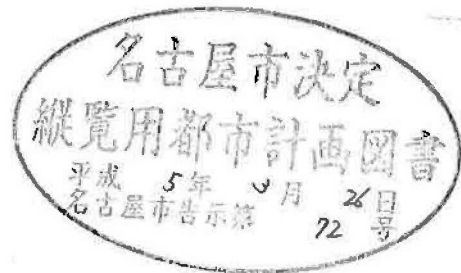 名古屋市決定
縦覧用都市計画図書
平成 5年 3月 26日
名古屋市告示第 72 号